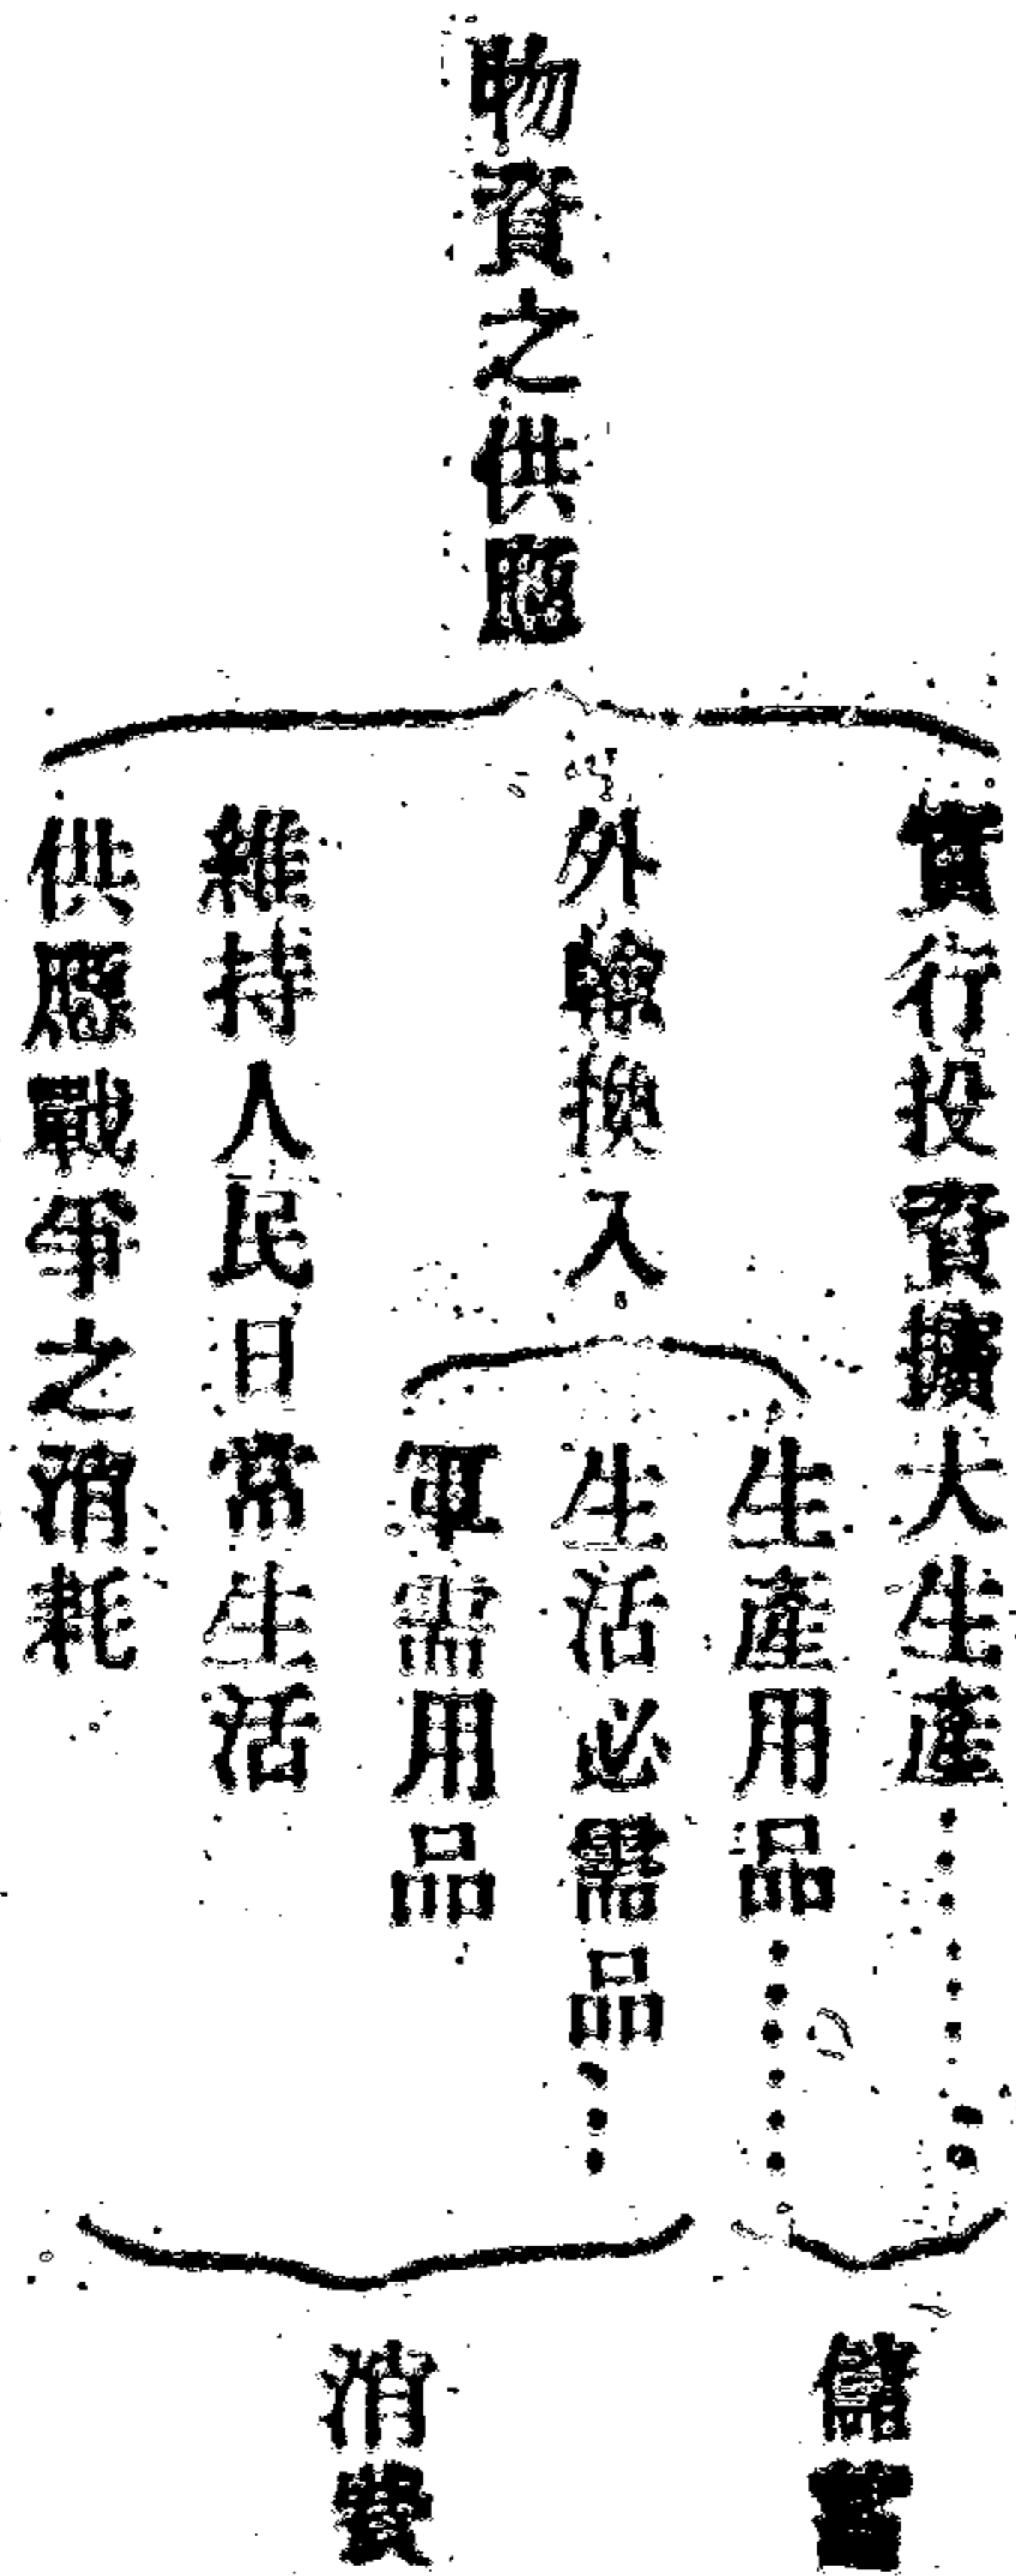 物資之供應
實行投資擴大生產
外輸換入
生產用品
生活必需品
軍需用品
維持人民日常生活
供應戰爭之消耗
儲蓄
消費